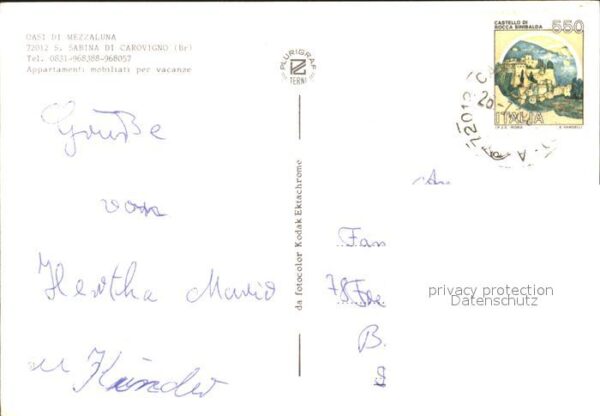 CASI DI MEZZALUNA
72012 S. SABINA DI CAROVIGNO (Br)
Tel. 0831-968388-968057
Appartamenti mobiliati per vacanze
Grüße
von
Hertha Mario
u Kinder
PLURIGRAF
TERNI
da fotocolor Kodak Ektachrome
CASTELLO DI
ROCCA SINIBALDA
550
ITALIA
I.P.Z.S. ROMA
E. VANGELLI
72012 CA
An
Fam
B.
privacy protection
Datenschutz